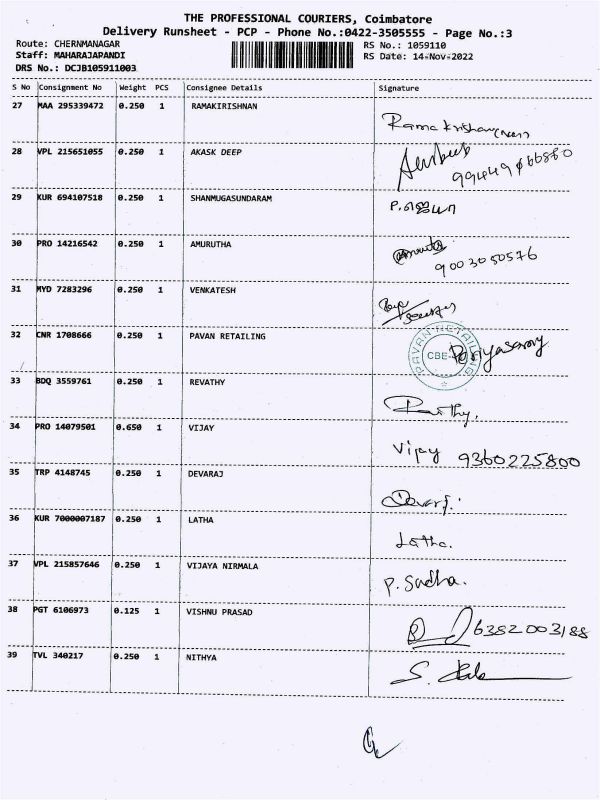 THE PROFESSIONAL COURIERS, Coimbatore
Delivery Runsheet - PCP - Phone No.:0422-3505555 - Page No.:3
Route: CHERNMANAGAR
Staff: MAHARAJAPANDI
DRS No.: DCJB105911003
RS No.: 1059110
RS Date: 14-Nov-2022
S No Consignment No Weight PCS Consignee Details Signature
27 MAA 295339472 0.250 1 RAMAKIRISHNAN
Rama Krishnan
28 VPL 215651055 0.250 1 AKASK DEEP
29 KUR 694107518 0.250 1 SHANMUGASUNDARAM
30 PRO 14216542 0.250 1 AMURUTHA
9003050576
31 MYD 7283296 0.250 1 VENKATESH
32 CNR 1708666 0.250 1 PAVAN RETAILING
PAVAN RETAILING
CBE
Periyasamy
33 BDQ 3559761 0.250 1 REVATHY
34 PRO 14079501 0.650 1 VIJAY
Vijay 9360225800
35 TRP 4148745 0.250 1 DEVARAJ
Devaraj
36 KUR 7000007187 0.250 1 LATHA
Latha.
37 VPL 215857646 0.250 1 VIJAYA NIRMALA
P. Sudha.
38 PGT 6106973 0.125 1 VISHNU PRASAD
6382003188
39 TVL 340217 0.250 1 NITHYA
S.